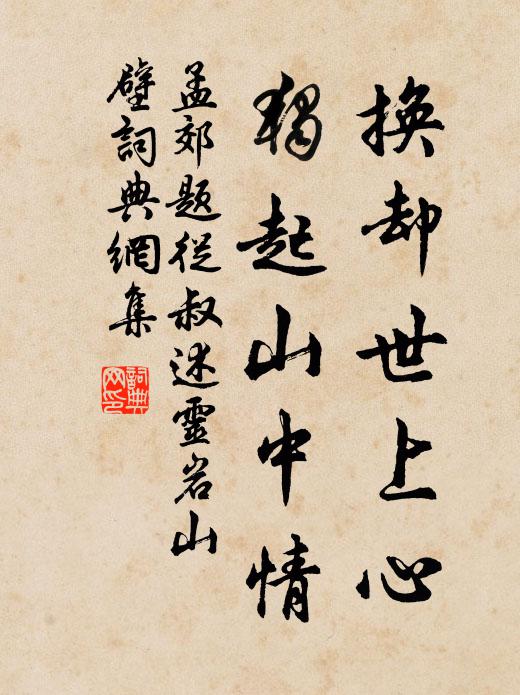 换却世上心
獨起山中情
孟郊題從叔述靈岩山
壁詞典網集
詞典网印